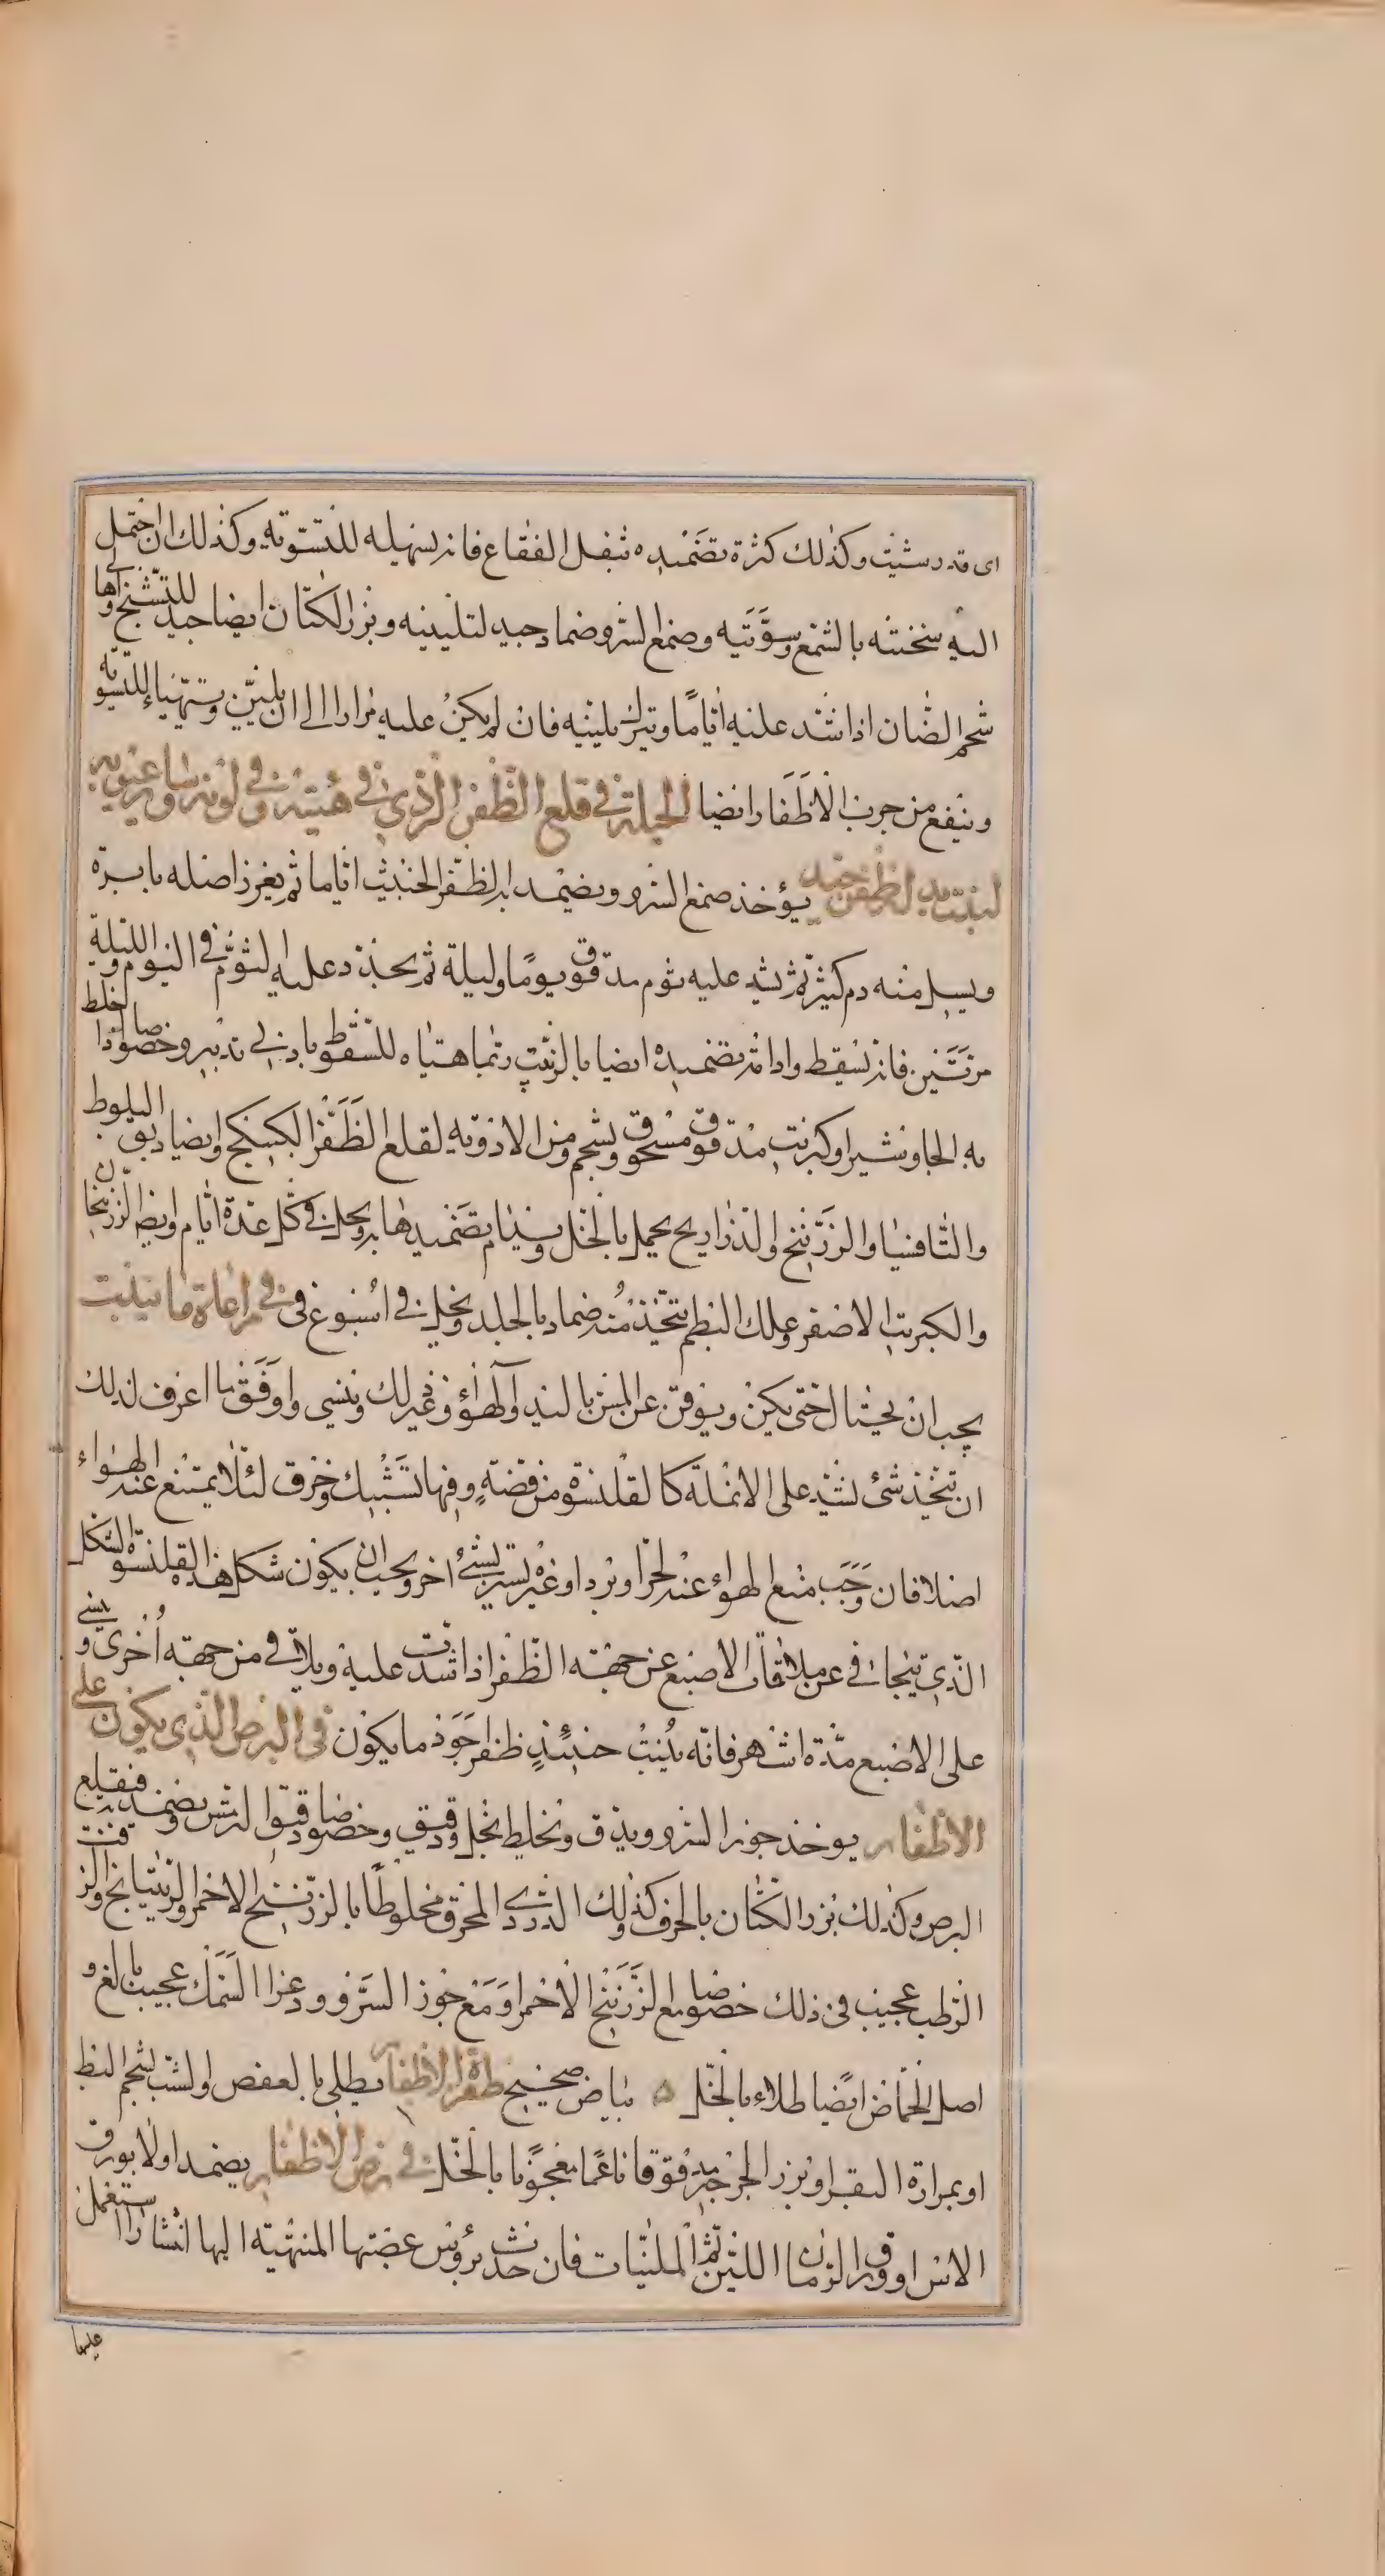 اى قدر شئت وكذلك كثرة تضميده بثفل الفقاع فانه يسهله للتسوية وكذلك ان احتمل
الية سخنته بالشمع وسوّيته وصمغ السرو ضماد جيد لتليينه وبزر الكتان ايضا جيد للتشنج واها
شحم الضان اذا شد عليه اياما وترك يلينه فان لم يكن عليه مرارا الى ان يلين ويتهيا للتسوية
وينفع من جرب الاظفار ايضا الحيلة في قلع الظفر الردي في هيئته وفي لونه
لينبت بدل الظفر جيد يؤخذ صمغ السرو ويضمد به الظفر الخبيث اياما ثم يغرز اصله بابرة
ويسيل منه دم كثير ثم يشد عليه ثوم مدقوق يوما وليلة ثم يجدد عليه الثوم في اليوم والليلة
مرتين فانه يسقط وادامة تضميده ايضا بالزبيب ربما هياه للسقوط بادنى تدبير وخصوصا اذا خلط
به الجاوشير او كبريت مدقوق مسحوق وشحم ومن الادوية لقلع الظفر الكبيكج وايضا دبق البلوط
والثافسيا والزرنيخ والذراريح يحمل بالخل ويدام تضميدها به ويحل في كل عدة ايام وايضا الزرنيخان
والكبريت الاصفر وعلك البطم يتخذ منه ضماد بالجلد ويخل في اسبوع في في مراعاة ما ينبت
يجب ان يحتال حتى يكن ويوقى عن المس باليد والهواء وغير ذلك وينسى واوفق ما اعرف لذلك
ان يتخذ شئ يشد على الانملة كالقلنسوة من فضة وفيها تشبيك وخرق لئلا يمتنع عنه الهواء
اصلا فان وجب منع الهواء عنه لحر او برد او غير ستر بشئ اخر ويجب ان يكون شكل هذه القلنسوة الشكل
الذي يتجافى عن ملاقاة الاصبع عن جهته الظفر اذا شدت عليه ويلاقى من جهته اخرى ويبنى
على الاصبع مدة اشهر فانه ينبت حينئذ ظفر اجود ما يكون في البرص الذي يكون على
الاظفار يوخذ جوز السرو ويدق ويخلط بخل ودقيق وخصوصا دقيق الترمس ويضمد به فيقلع
البرص وكذلك بزر الكتان بالحرف وكذلك الدردى المحرق مخلوطا بالزرنيخ الاحمر والريتيانج والزفت
الرطب عجيب فى ذلك خصوصا مع الزرنيخ الاحمر او مع جوز السرو وغرا السمك عجيب بالغ و
اصل الحماض ايضا طلاء بالخل ه بياض صحيح صفرة الاظفار يطلى بالعفص والشب بشحم البط
او بمرارة البقر او بزر الجرجير مدقوقا ناعما معجونا بالخل في رض الاظفار يضمد اولا بورق
الاس او ورق الرمان اللين ثم الملينات فان حدث برؤس عصبتها المنتهية اليها انتشار استعمل
عليها